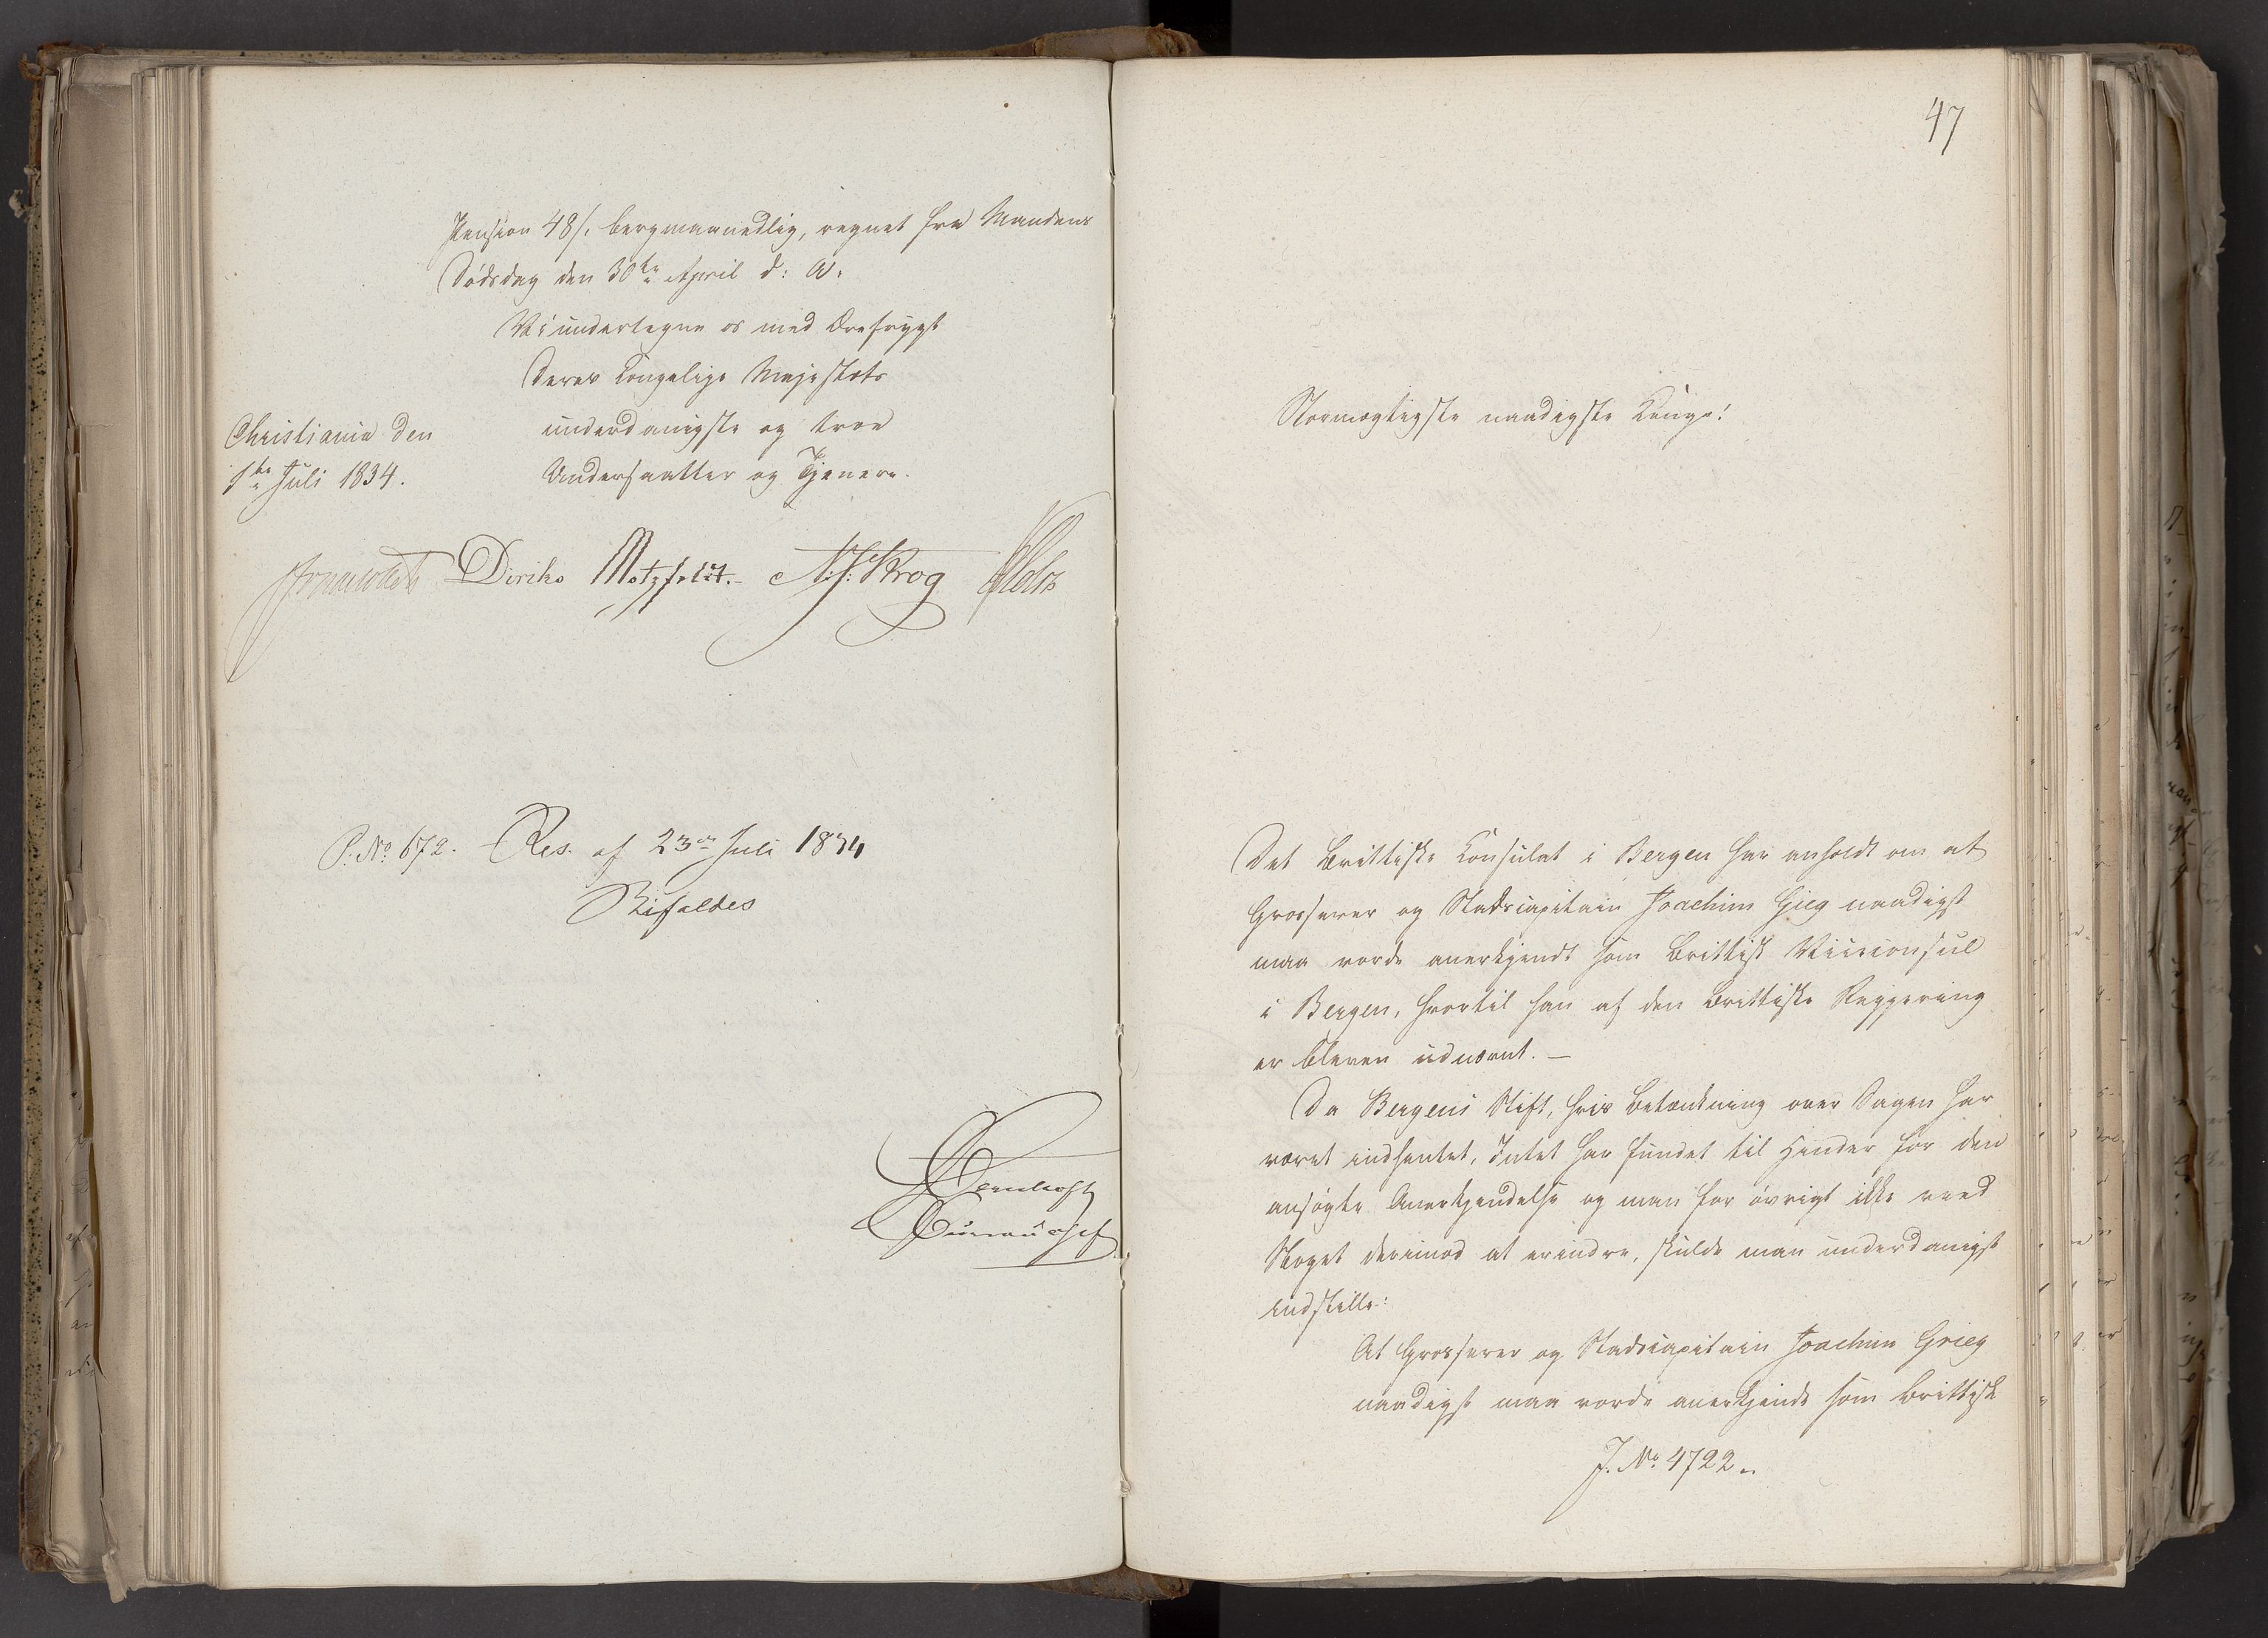 Pension 48/. bergmaanedlig, regnet fra Mandens
Dödsdag den 30te April d: A.
Vi undertegne os med Ærefrygt
Deres Kongelige Majestæts
underdanigste og troe
Undersaatter og Tjenere.
Christiania den
1te Juli 1834.
Diriks Motzfeldt. N: J: Krog Holst
P. No 672. Res. af 23de Juli 1834
Bifaldes
47
Stormægtigste naadigste Konge!
Det brittiske Consulat i Bergen har anholdt om at
Grosserer og Stadscapitain Joachim Gieg naadigst
maa vorde anerkjendt som brittisk Viceconsul
i Bergen, hvortil han af den brittiske Reggering
er bleven udnævnt. —
Da Bergens Stift, hvis Betænkning over Sagen har
været indhentet, Intet har fundet til Hinder for den
ansögte Anerkjendelse og man for övrigt ikke veed
Noget derimod at erindre, skulde man underdanigst
indstille:
At Grosserer og Stadscapitain Joachim Grieg
naadigst maa vorde anerkjendt som brittisk
J. No 4722.